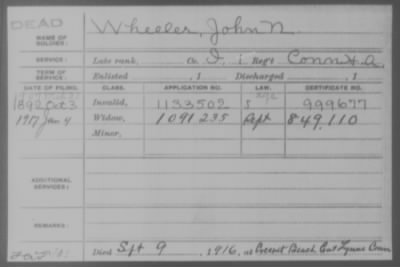 DEAD
NAME OF SOLDIER: Wheeler, John N.
SERVICE: Late rank, Co. I, 1 Reg't Conn H.A.
TERM OF SERVICE: Enlisted , 1 Discharged , 1
DATE OF FILING. CLASS. APPLICATION NO. LAW. CERTIFICATE NO.
1892 Oct 3 Invalid, 1133502 999677
1917 Jan 4 Widow, 1091235 Sept 849,110
Minor,
ADDITIONAL SERVICES:
REMARKS:
Died Sept 9, 1916, at Crescent Beach East Lyme Conn